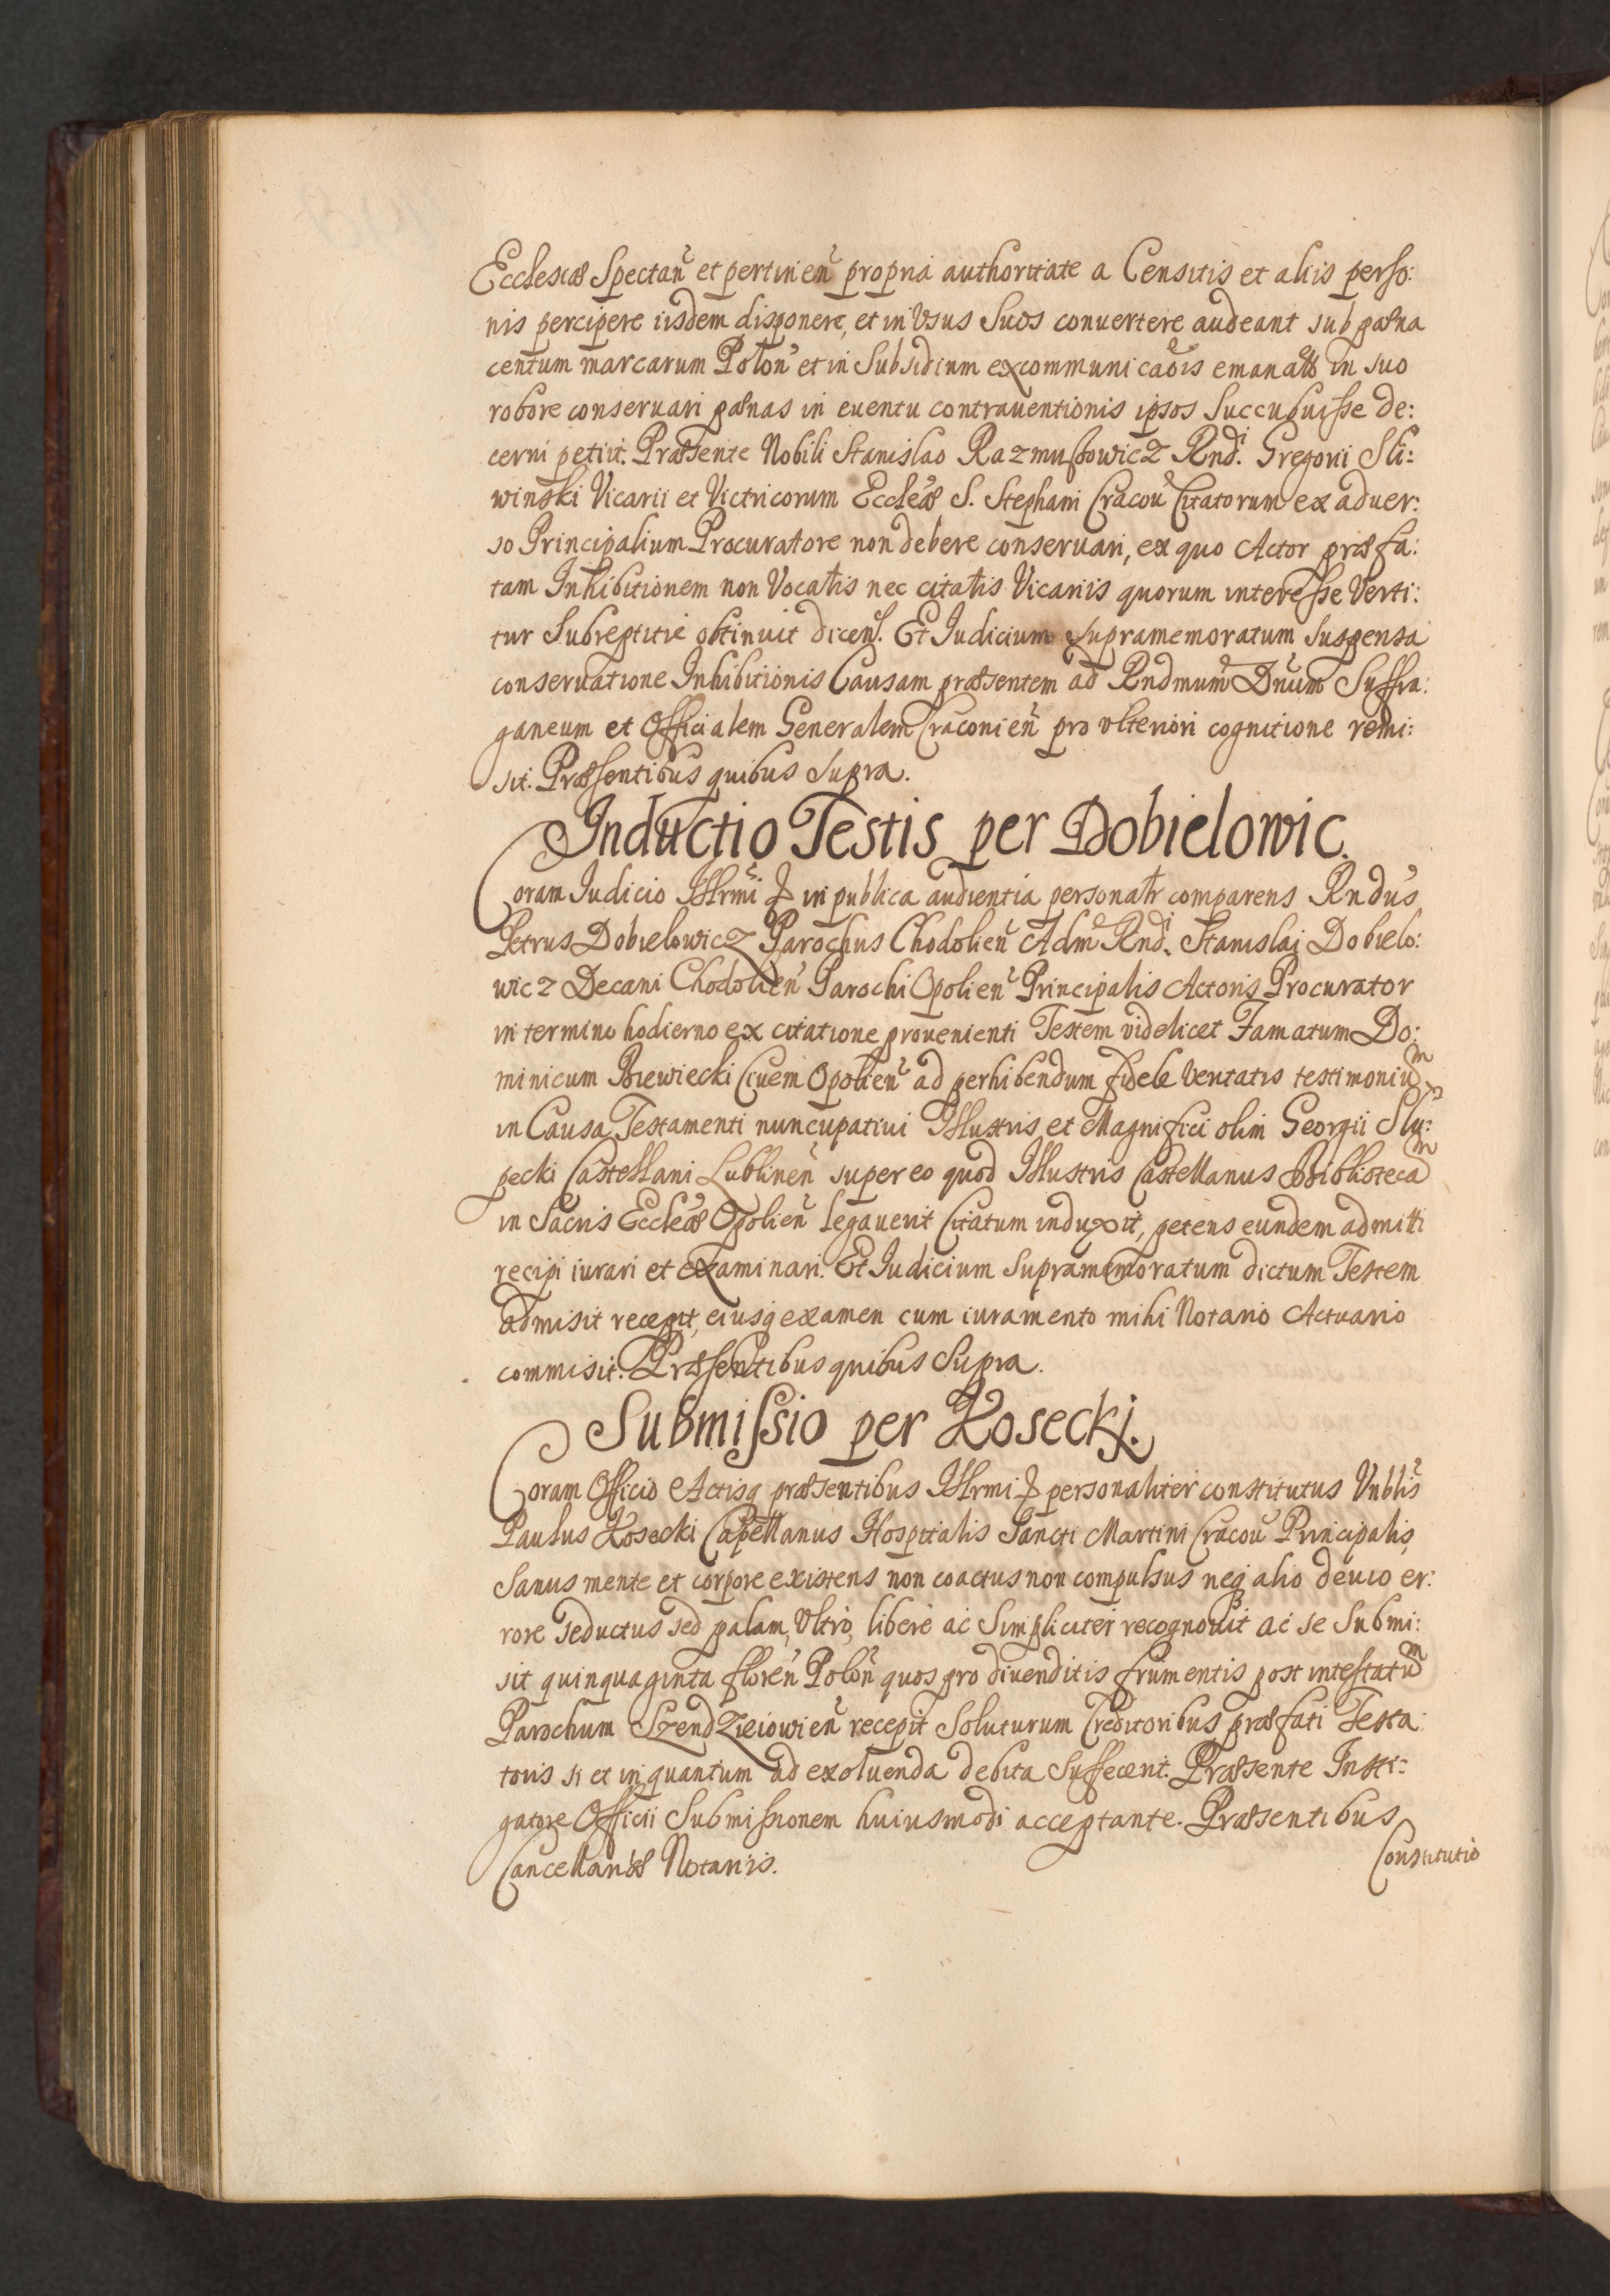 Ecclesiæ Spectan̄ et pertinen̄ propria authoritate a Censitis et aliis perso:
nis percipere iisdem disponere, et in Vsus Suos conuertere audeant sub pæna
centum marcarum Polon̄ et in Subsidium excommunicaõis emanatæ in suo
robore conseruari pænas in euentu contrauentionis ipsos Succubuisse de:
cerni petiit. Præsente Nobili Stanislao Razmusowicz Rnd̃i. Gregorii Sli:
winski Vicarii et Victricorum Eccleæ S. Stephani Cracou̅ Citatorum ex aduer:
so Principalium Procuratore non debere conseruari, ex quo Actor præfa:
tam Inhibitionem non Vocatis nec citatis Vicariis quorum interesse Verti:
tur Subreptitie obtinuit dicen̄. Et Iudicium supramemoratum suspensa
conseruatione Inhibitionis Causam præsentem ad Rndmum Dnum Suffra:
ganeum et Officialem Generalem Craconien̄ pro vlteriori cognitione remi:
sit. Præsentibus quibus supra.
Inductio Testis per Dobielowic.
Coram Iudicio Illrmi & in publica audientia personatr comparens Rndus
Petrus Dobielowicz Parochus Chodolien̄ Adm̃ Rnd̃i. Stanislai Dobielo:
wicz Decani Chodolien̄ Parochi Opolien̄ Principalis Actoris Procurator
in termino hodierno ex citatione prouenienti Testem videlicet Famatum Do:
minicum Biewiecki Ciuem Opolien̄ ad perhibendum fidele veritatis testimonium
in Causa Testamenti nuncupatiui Illustris et Magnifici olim Georgii Slu:
pecki Castellani Lublinen̄ super eo quod Illustris Castellanus Bibliotecam
in Sacris Eccleæ Opolien̄ legauerit Citatum induxit, petens eundem admitti
recipi iurari et examinari. Et Iudicium Supramemoratum dictum Testem
admisit recepit, eiusq examen cum iuramento mihi Notario Actuario
commisit. Præsentibus quibus Supra.
Submissio per Kosecki.
Coram Officio Actisq præsentibus Illrmi & personaliter constitutus Vnblis
Paulus Kosecki Capellanus Hospitalis Sancti Martini Cracou̅ Principalis,
Sanus mente et corpore existens non coactus non compulsus neq alio deuio er:
rore seductus sed palam, Vltro, libere ac Simpliciter recognouit ac se Submi:
sit quinquaginta floren̄ Polon̄ quos pro diuenditis frumentis post intestatum
Parochum Szendzieiowien̄ recepit Soluturum Creditoribus præfati Testa:
toris si et in quantum ad exoluenda debita Suffecerit. Præsente Insti:
gatore Officii Submissionem huiusmodi acceptante. Præsentibus
Cancellariæ Notariis.
Constitutio